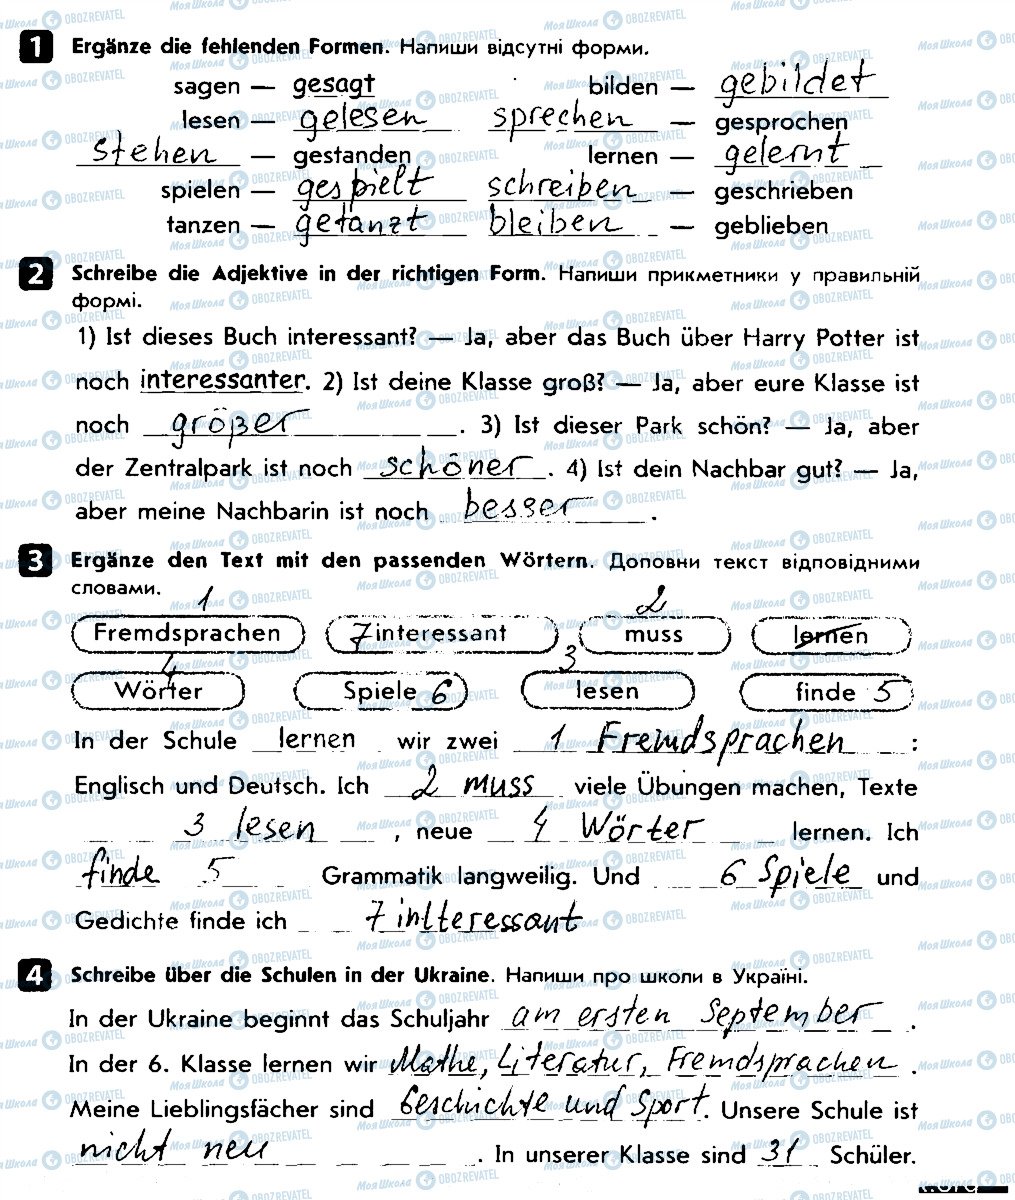 1 Ergänze die fehlenden Formen. Напиши відсутні форми.
sagen — gesagt bilden — gebildet
lesen — gelesen sprechen — gesprochen
stehen — gestanden lernen — gelernt
spielen — gespielt schreiben — geschrieben
tanzen — getanzt bleiben — geblieben
2 Schreibe die Adjektive in der richtigen Form. Напиши прикметники у правильній
формі.
1) Ist dieses Buch interessant? — Ja, aber das Buch über Harry Potter ist
noch interessanter. 2) Ist deine Klasse groß? — Ja, aber eure Klasse ist
noch größer. 3) Ist dieser Park schön? — Ja, aber
der Zentralpark ist noch schöner. 4) Ist dein Nachbar gut? — Ja,
aber meine Nachbarin ist noch besser.
3 Ergänze den Text mit den passenden Wörtern. Доповни текст відповідними
словами.
1 2
Fremdsprachen 7 interessant muss lernen
4 3
Wörter Spiele 6 lesen finde 5
In der Schule lernen wir zwei 1 Fremdsprachen :
Englisch und Deutsch. Ich 2 muss viele Übungen machen, Texte
3 lesen, neue 4 Wörter lernen. Ich
finde 5 Grammatik langweilig. Und 6 Spiele und
Gedichte finde ich 7 inlteressant
4 Schreibe über die Schulen in der Ukraine. Напиши про школи в Україні.
In der Ukraine beginnt das Schuljahr am ersten September.
In der 6. Klasse lernen wir Mathe, Literatur, Fremdsprachen.
Meine Lieblingsfächer sind Geschichte und Sport. Unsere Schule ist
nicht neu. In unserer Klasse sind 31 Schüler.